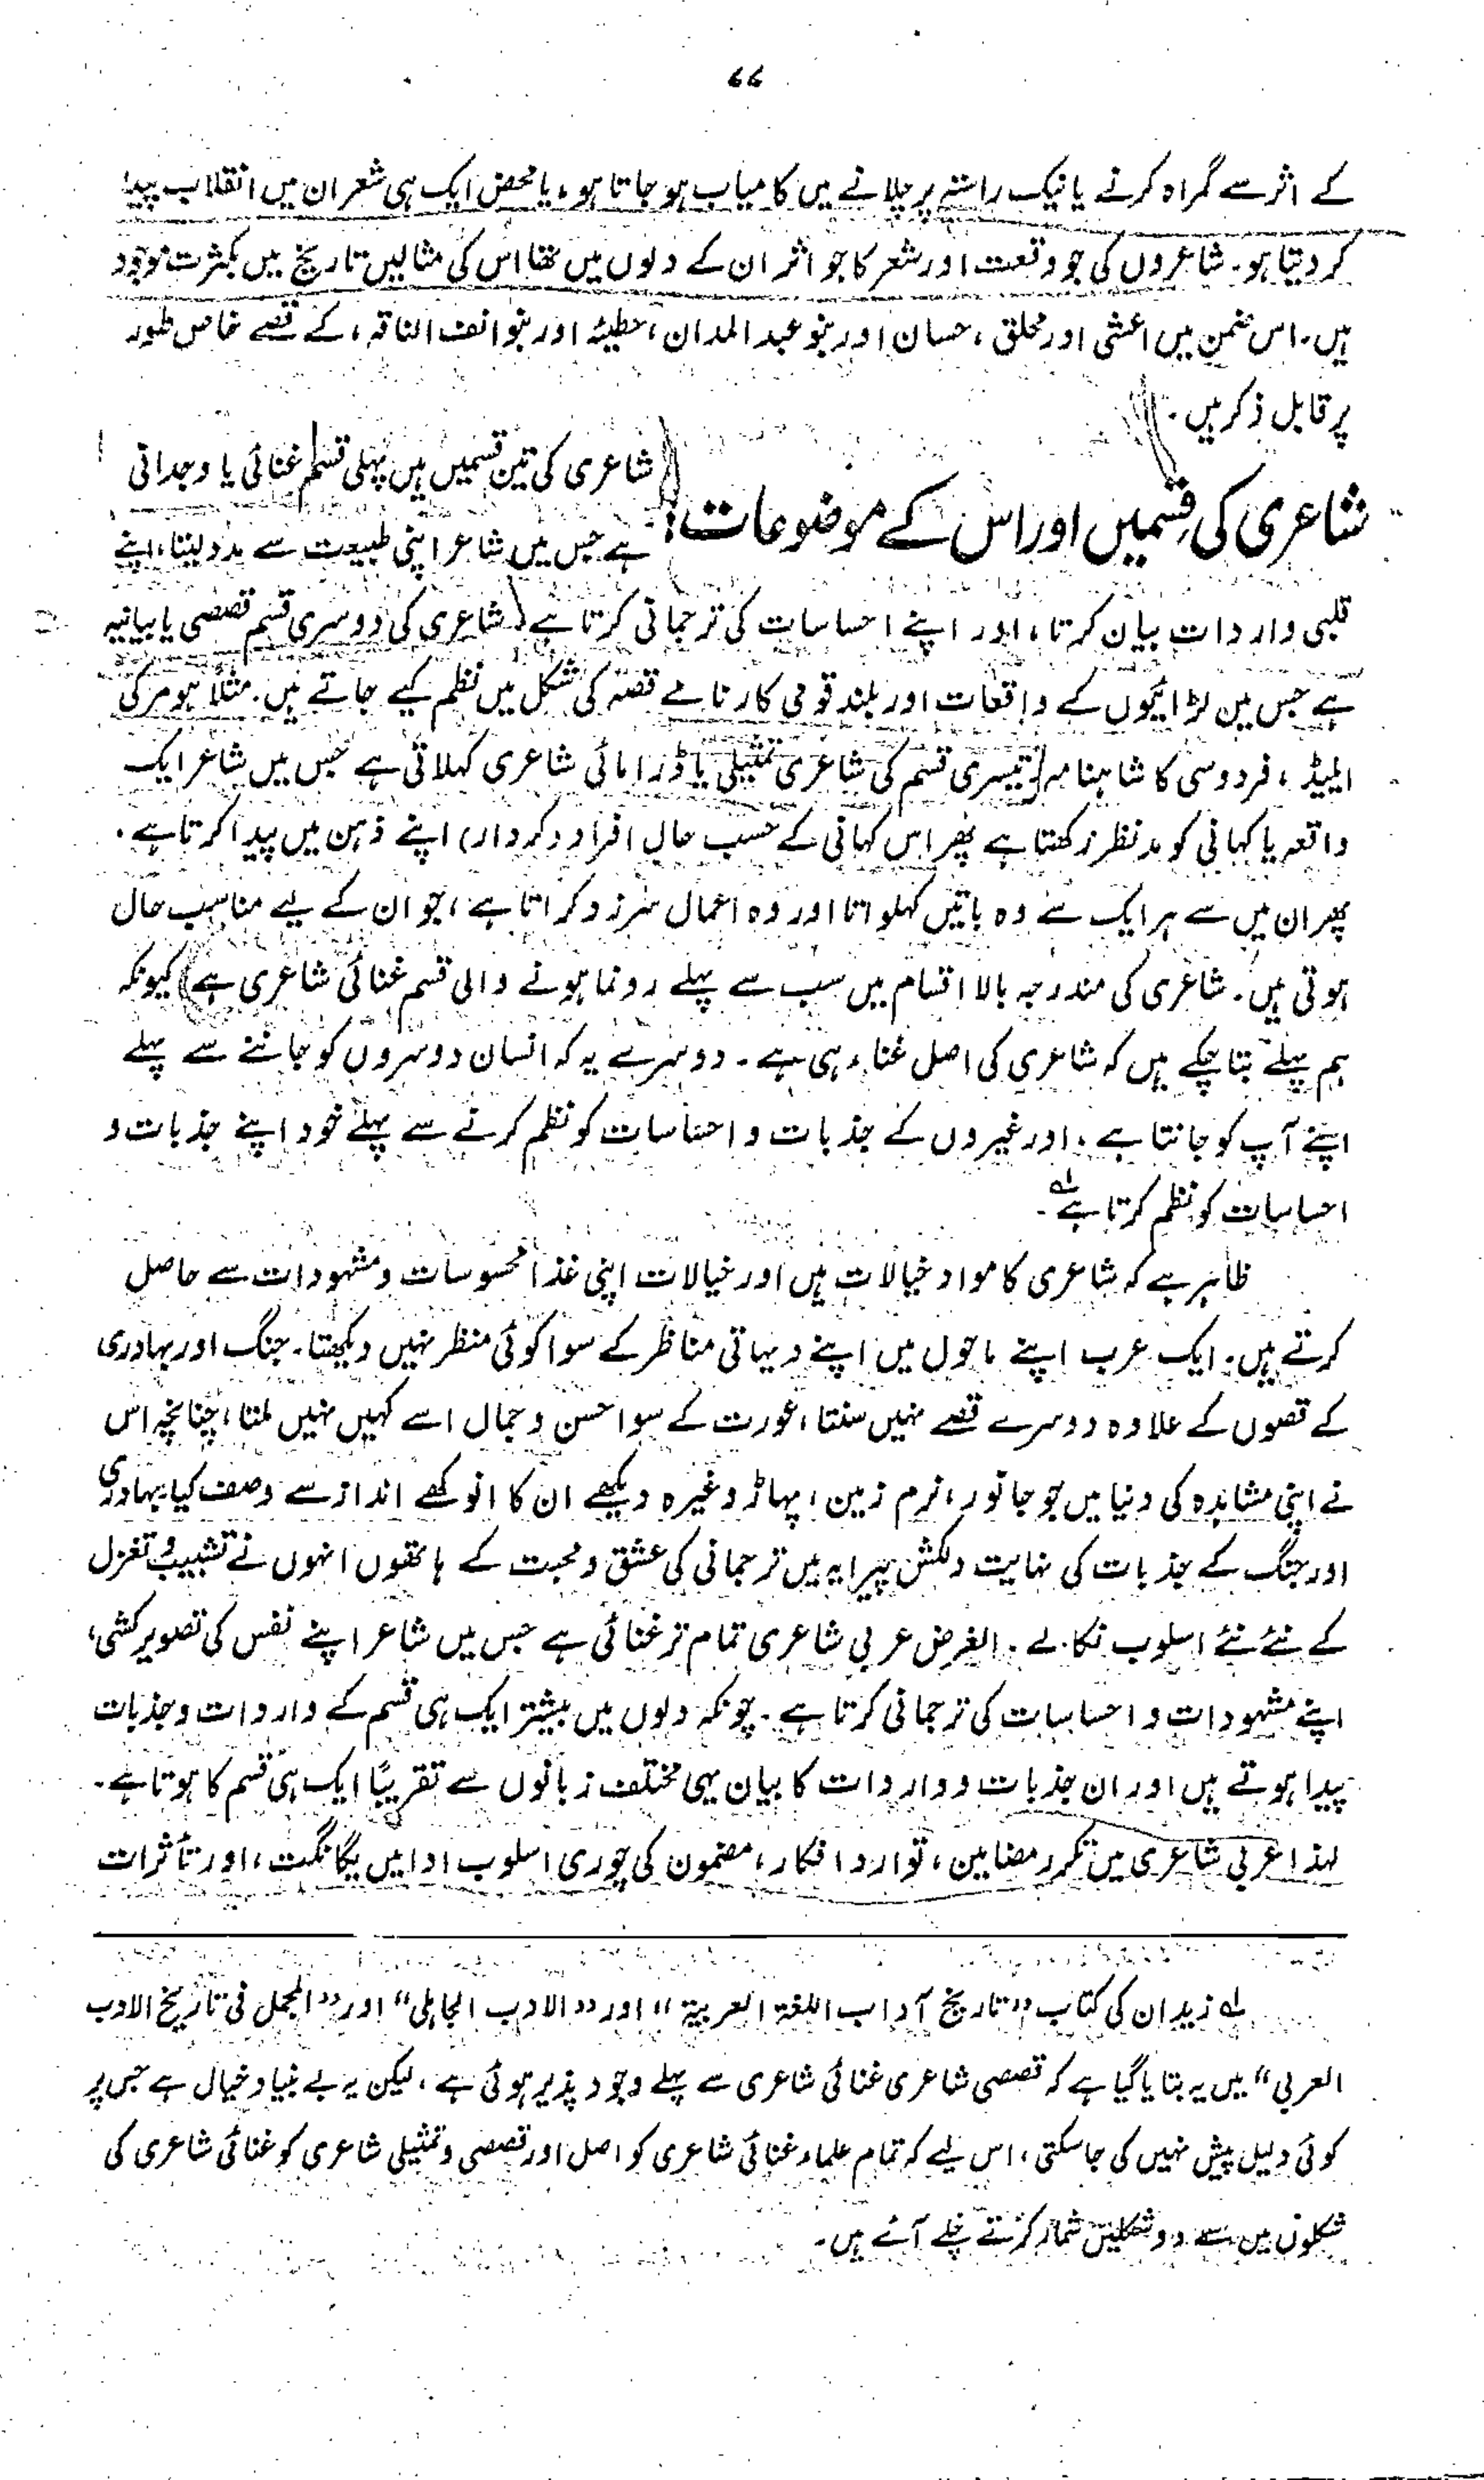 ۶۶
کے اثر سے گمراہ کرنے یا نیک راستے پر چلانے میں کامیاب ہو جاتا ہو، یا محض ایک ہی شعر ان میں انقلاب پیدا
کر دیتا ہو۔ شاعروں کی جو وقعت اور شعر کا جو اثر ان کے دلوں میں تھا اس کی مثالیں تاریخ میں بکثرت موجود
ہیں۔ اس ضمن میں اعشی اور محلق، حسان اور بنو عبد المدان، حطیئہ اور بنو انف الناقہ، کے قصے خاص طور
پر قابل ذکر ہیں۔
شاعری کی قسمیں اور اس کے موضوعات:
شاعری کی تین قسمیں ہیں پہلی قسم غنائی یا وجدانی
ہے جس میں شاعر اپنی طبیعت سے مدد لیتا، اپنے
قلبی واردات بیان کرتا، اور اپنے احساسات کی ترجمانی کرتا ہے۔ شاعری کی دوسری قسم قصصی یا بیانیہ
ہے جس میں لڑائیوں کے واقعات اور بلند قومی کارنامے قصہ کی شکل میں نظم کیے جاتے ہیں۔ مثلاً ہومر کی
ایلیڈ، فردوسی کا شاہنامہ۔ تیسری قسم کی شاعری تمثیلی یا ڈرامائی شاعری کہلاتی ہے جس میں شاعر ایک
واقعہ یا کہانی کو مد نظر رکھتا ہے پھر اس کہانی کے حسب حال افراد (کردار) اپنے ذہن میں پیدا کرتا ہے۔
پھر ان میں سے ہر ایک سے وہ باتیں کہلواتا اور وہ اعمال سرزد کراتا ہے، جو ان کے لیے مناسب حال
ہوتی ہیں۔ شاعری کی مندرجہ بالا اقسام میں سب سے پہلے رونما ہونے والی قسم غنائی شاعری ہے) کیونکہ
ہم پہلے بتا چکے ہیں کہ شاعری کی اصل غناء ہی ہے۔ دوسرے یہ کہ انسان دوسروں کو جاننے سے پہلے
اپنے آپ کو جانتا ہے، اور غیروں کے جذبات و احساسات کو نظم کرنے سے پہلے خود اپنے جذبات و
احساسات کو نظم کرتا ہے لہ۔
ظاہر ہے کہ شاعری کا مواد خیالات ہیں اور خیالات اپنی غذا محسوسات و مشہودات سے حاصل
کرتے ہیں۔ ایک عرب اپنے ماحول میں اپنے دیہاتی مناظر کے سوا کوئی منظر نہیں دیکھتا۔ جنگ اور بہادری
کے قصوں کے علاوہ دوسرے قصے نہیں سنتا، عورت کے سوا حسن و جمال اسے کہیں نہیں ملتا، چنانچہ اس
نے اپنی مشاہدہ کی دنیا میں جو جانور، نرم زمین، پہاڑ وغیرہ دیکھے ان کا انوکھے انداز سے وصف کیا۔ بہادری
اور جنگ کے جذبات کی نہایت دلکش پیرایہ میں ترجمانی کی عشق و محبت کے ہاتھوں انہوں نے تشبیب و تغزل
کے نئے نئے اسلوب نکالے۔ الغرض عربی شاعری تمام تر غنائی ہے جس میں شاعر اپنے نفس کی تصویر کشی،
اپنے مشہودات و احساسات کی ترجمانی کرتا ہے۔ چونکہ دلوں میں بیشتر ایک ہی قسم کے واردات و جذبات
پیدا ہوتے ہیں اور ان جذبات و واردات کا بیان ہی مختلف زبانوں سے تقریبًا ایک ہی قسم کا ہوتا ہے۔
لہذا عربی شاعری میں تکرر مضامین، توارد افکار، مضمون کی چوری اسلوب ادا میں یگانگت، اور تأثرات
لہ زیدان کی کتاب "تاریخ آداب اللغۃ العربیۃ" اور "الادب الجاہلی" اور "المجمل فی تاریخ الادب
العربی" میں یہ بتایا گیا ہے کہ قصصی شاعری غنائی شاعری سے پہلے وجود پذیر ہوئی ہے، لیکن یہ بے بنیاد خیال ہے جس پر
کوئی دلیل پیش نہیں کی جا سکتی، اس لیے کہ تمام علماء غنائی شاعری کو اصل اور قصصی و تمثیلی شاعری کو غنائی شاعری کی
شکلوں میں سے دو شکلیں شمار کرتے چلے آئے ہیں۔